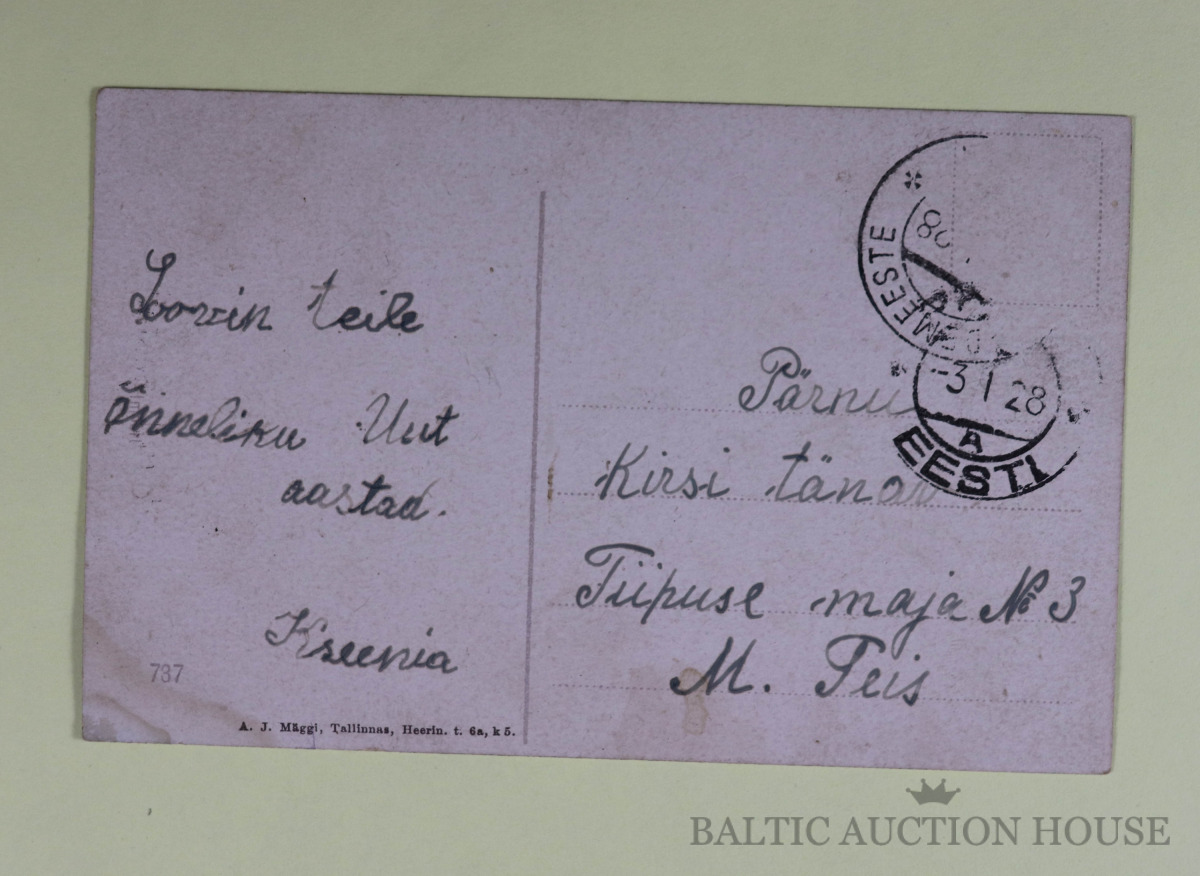 Soovin teile
õnneliku Uut
aastad.
Kseenia
737
A. J. Mäggi, Tallinnas, Heerin. t. 6a, k 5.
Pärnu
Kirsi tänav
Tiipuse maja № 3
M. Teis
MEESTE
-3 I 28
A
EESTI
BALTIC AUCTION HOUSE